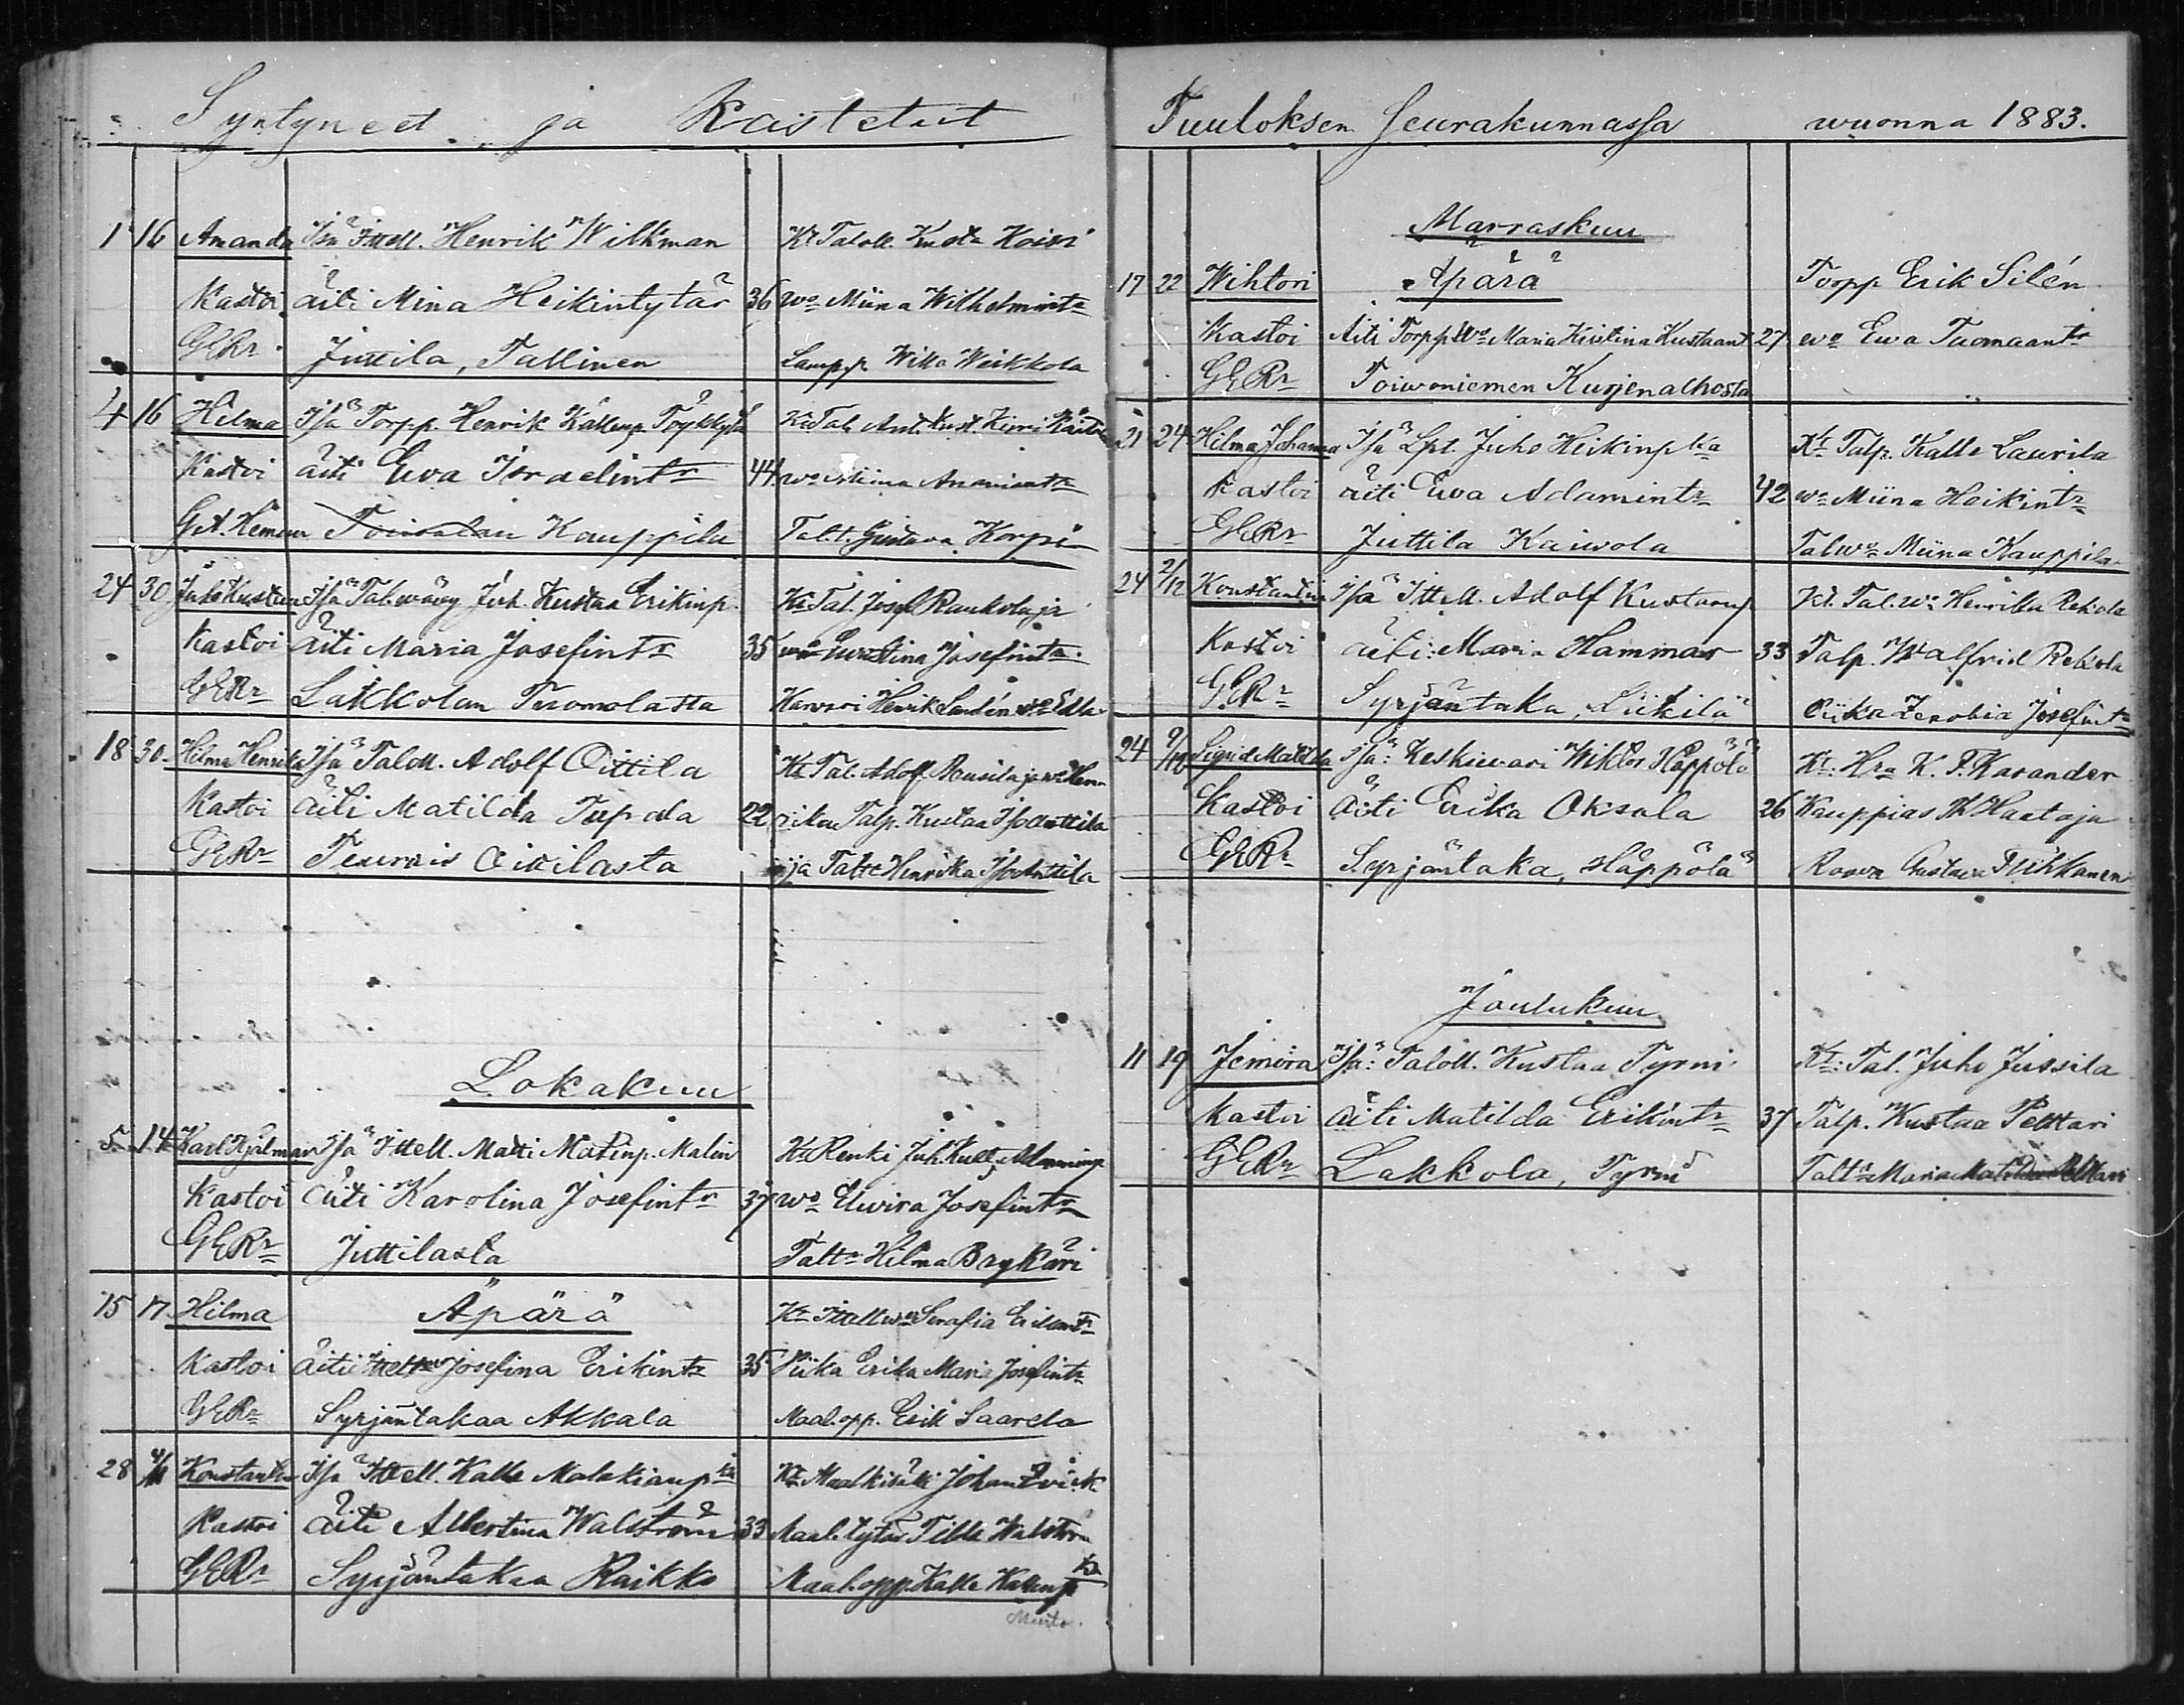 Syntyneet ja Kastetut
1 16 Amanda Isä Ittell. Henrik Wilkman Kt Taloll. Kusta Koivi
Kastoi äiti Mina Heikintytär 36 wo Miina Wilhelmintr
GERr Juttila, Tallinen Lampp. Wille Weikkola
4 16 Hilma Isä Torpp. Henrik Kallenp. Töykkylä
Kastoi äiti Ewa Israelintr 44 wo Miina Ananiantr
G.A. Heman Toivalan Kauppila Talt. Gustava Korpi
24 30 Juho Kustaa Isä Tal.wäwy Juh. Kustaa Erikinp. Kt Tal. Josef Raukola ja
Kastoi äiti Maria Josefintr 35 wo Eurstina Josefintr
GERr Lakkolan Tuomolasta Karvari Henrik Landén wo Edla
18 30 Hilma Henrika Isä Taloll. Adolf Oittila Kt Tal. Adolf Pausila ja wo Hen-
Kastoi äiti Matilda Tupala 22 rika Talp. Kustaa Isoanttila
GERr Teuvois Oivilasta ja Taltt Henrika IsoAnttila
Lokakuu
5 14 Karl Hjalmar Isä Ittell. Matti Matinp. Malin Kt Renki Juh. Kust. Manninp.
Kastoi äiti Karolina Josefintr 37 wo Elwira Josefintr
GERr Juttilasta Taltr Hilma Brykäri
15 17 Hilma Äpärä Kt Ittell wo Serafia Erikintr
Kastoi äiti Ittell Josefina Erikintr 35 Piika Erika Maria Josefintr
GERr Syrjäntakaa Akkala Maal.opp. Erik Saarela
28 4/11 Konstantin Isä Ittell. Kalle Malakianp ka Kt Maalkisälli Johan Zvick
Kastoi äiti Albertina Walström 33 Maal. tytär Tilda Walström
GERr Syrjäntakaa Raikko Maal.opp. Kalle Kallenp ka
Muuto.
Tuuloksen Seurakunnassa wuonna 1883.
Marraskuu
17 22 Wihtori Äpärä Torpp Erik Silén
Kastoi Äiti Torpp Wo Maria Kristina Kustaant 27 wo Ewa Tuomaantr
GERr Toiwoniemen Kurjenalhosta
21 24 Hilma Johanna Isä Lpt. Juho Heikinp ka Kt Talp. Kalle Laurila
Kastoi äiti Ewa Adamintr 42 wo Miina Heikintr
GERr Juttila Kaiwola Talwo Miina Kauppila
24 2/12 Konstantin Isä Ittell. Adolf Kustaanp Kt. Tal. wo Henrika Rekola
Kastoi äiti: Maria Hammar 33 Talp. Walfrid Rekola
GERr Syrjäntaka, Liikilä Piika Zenobia Josefintr
24 9/12 Sigrid Matilda Isä: Keskiewari Wiktor Häppölä Kt: Hra K. F. Karander
Kastoi Äiti Erika Oksala 26 Kauppias Haataja
GERr Syrjäntaka, Häppölä Rouwa Gustava Tiihkanen
Joulukuu
11 19 Jemina Isä: Taloll. Kustaa Tyrni Kt: Tal. Juho Jussila
Kastoi äiti Matilda Erikintr 37 Talp. Kustaa Pelttari
GERr Lakkola, Tyrni Taltr Maria Matilda Pelttari